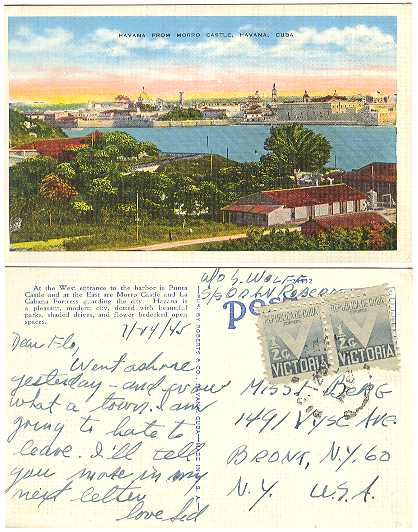 HAVANA FROM MORRO CASTLE, HAVANA, CUBA
At the West entrance to the harbor is Punta
Castle and at the East are Morro Castle and La
Cabana Fortress guarding the city. Havana is
a pleasant, modern city, dotted with beautiful
parks, shaded drives, and flower bedecked open
spaces.
11/24/45
Dear Flo,
Went ashore
yesterday - and wow
what a town. I am
going to hate to
leave. I'll tell
you more in my
next letter
love Sid
BY ROBERTS & CO. HAVANA, CUBA MADE IN U.S.A.
W/O S. WOLF
S/S ORLN
POST
REPUBLICA DE CUBA
½ C
VICTORIA
REPUBLICA DE CUBA
½ C
VICTORIA
MISS BERG
1491 VYSE AVE.
BRONX, N.Y. 60
N.Y. U.S.A.